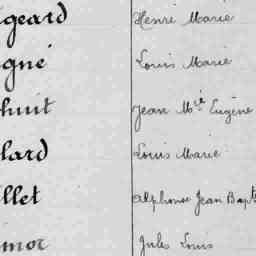 geard Henri Marie
gné Louis Marie
huit Jean Mie Eugène
lard Louis Marie
llet Alphonse Jean Bapt
mot Jules Louis